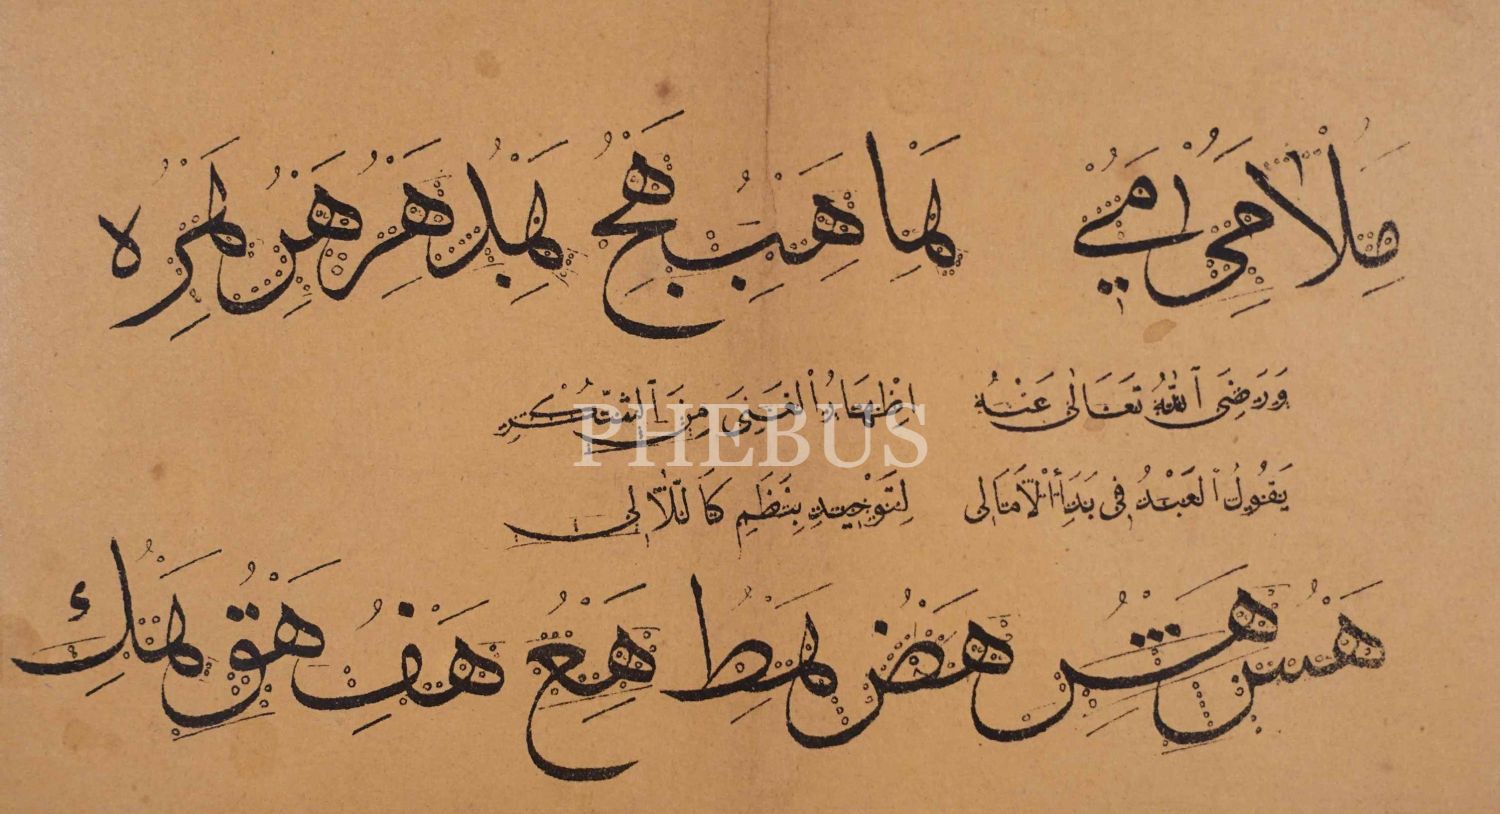 مِلَامِيْ مِيْ هَا هَبْ هَجْ هَدْ هَرْ هَزْ هَرَهْ
وَرَضِيَ اللّٰهُ تَعَالٰى عَنْهُ اِظْهَارُ الْغِنَى مِنَ الشُّكْرِ
يَقُولُ الْعَبْدُ فِي بَدْأِ الْأَمَالِي لِتَوْحِيدٍ بِنَظْمٍ كَاللَّآلِي
هَسْ هَشْ هَصْ هَطْ هَعْ هَفْ هَقْ هَكْ
PHEBUS